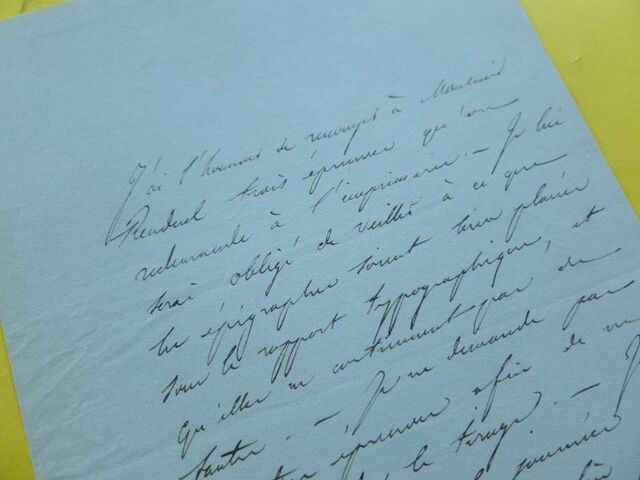 J'ai l'honneur de renvoyer à Monsieur
Renduel trois épreuves qu'on
redemande à l'imprimerie. — Je lui
serai obligé de veiller à ce que
les épigraphes soient bien placées
sous le rapport typographique, et
qu'elles ne contiennent pas de
fautes. — Je ne demande pas
épreuves afin de ne
le tirage. — J
journée